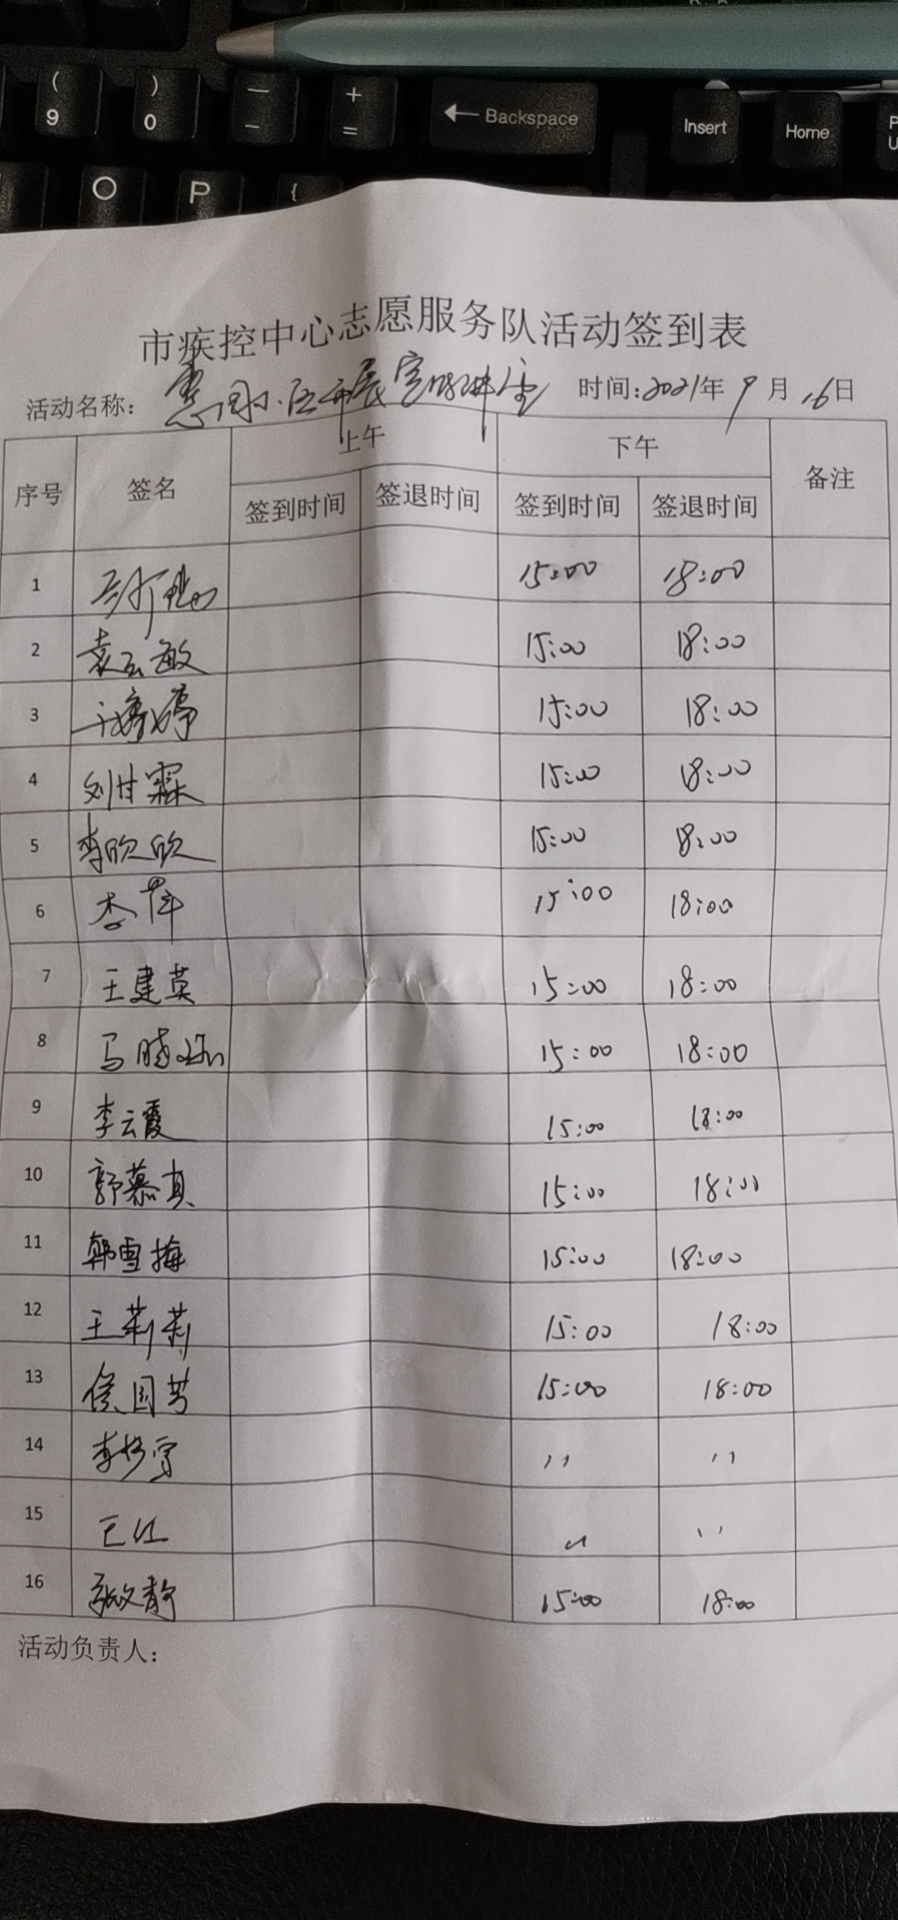 ( 9
) 0
— -
+ =
← Backspace
Insert
Home
O
P
{
市疾控中心志愿服务队活动签到表
活动名称: 时间:2021年9月16日
序号 签名 上午 下午 备注
签到时间 签退时间 签到时间 签退时间
1 15:00 18:00
2 袁云敏 15:00 18:00
3 15:00 18:00
4 刘甘霖 15:00 18:00
5 李欣欣 15:00 18:00
6 李萍 15:00 18:00
7 王建英 15:00 18:00
8 马晓 15:00 18:00
9 李云霞 15:00 18:00
10 郭慕真 15:00 18:00
11 韩雪梅 15:00 18:00
12 王莉莉 15:00 18:00
13 侯国芳 15:00 18:00
14 〃 〃
15 〃 〃
16 张文静 15:00 18:00
活动负责人: